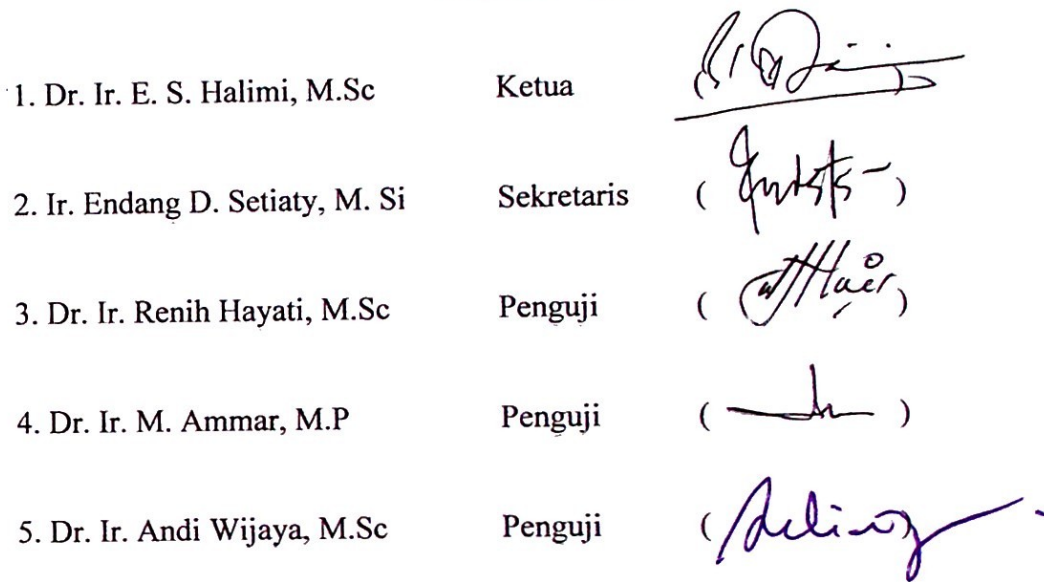 1. Dr. Ir. E. S. Halimi, M.Sc Ketua ( )
2. Ir. Endang D. Setiaty, M. Si Sekretaris ( )
3. Dr. Ir. Renih Hayati, M.Sc Penguji ( )
4. Dr. Ir. M. Ammar, M.P Penguji ( )
5. Dr. Ir. Andi Wijaya, M.Sc Penguji ( )